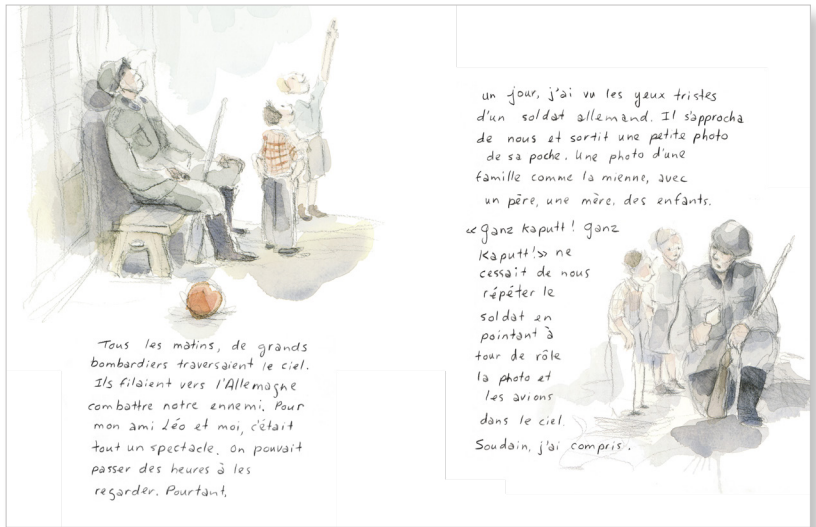 Tous les matins, de grands
bombardiers traversaient le ciel.
Ils filaient vers l'Allemagne
combattre notre ennemi. Pour
mon ami Léo et moi, c'était
tout un spectacle. On pouvait
passer des heures à les
regarder. Pourtant,
un jour, j'ai vu les yeux tristes
d'un soldat allemand. Il s'approcha
de nous et sortit une petite photo
de sa poche. Une photo d'une
famille comme la mienne, avec
un père, une mère, des enfants.
« Ganz kaputt ! Ganz
Kaputt !» ne
cessait de nous
répéter le
soldat en
pointant à
tour de rôle
la photo et
les avions
dans le ciel.
Soudain, j'ai compris.